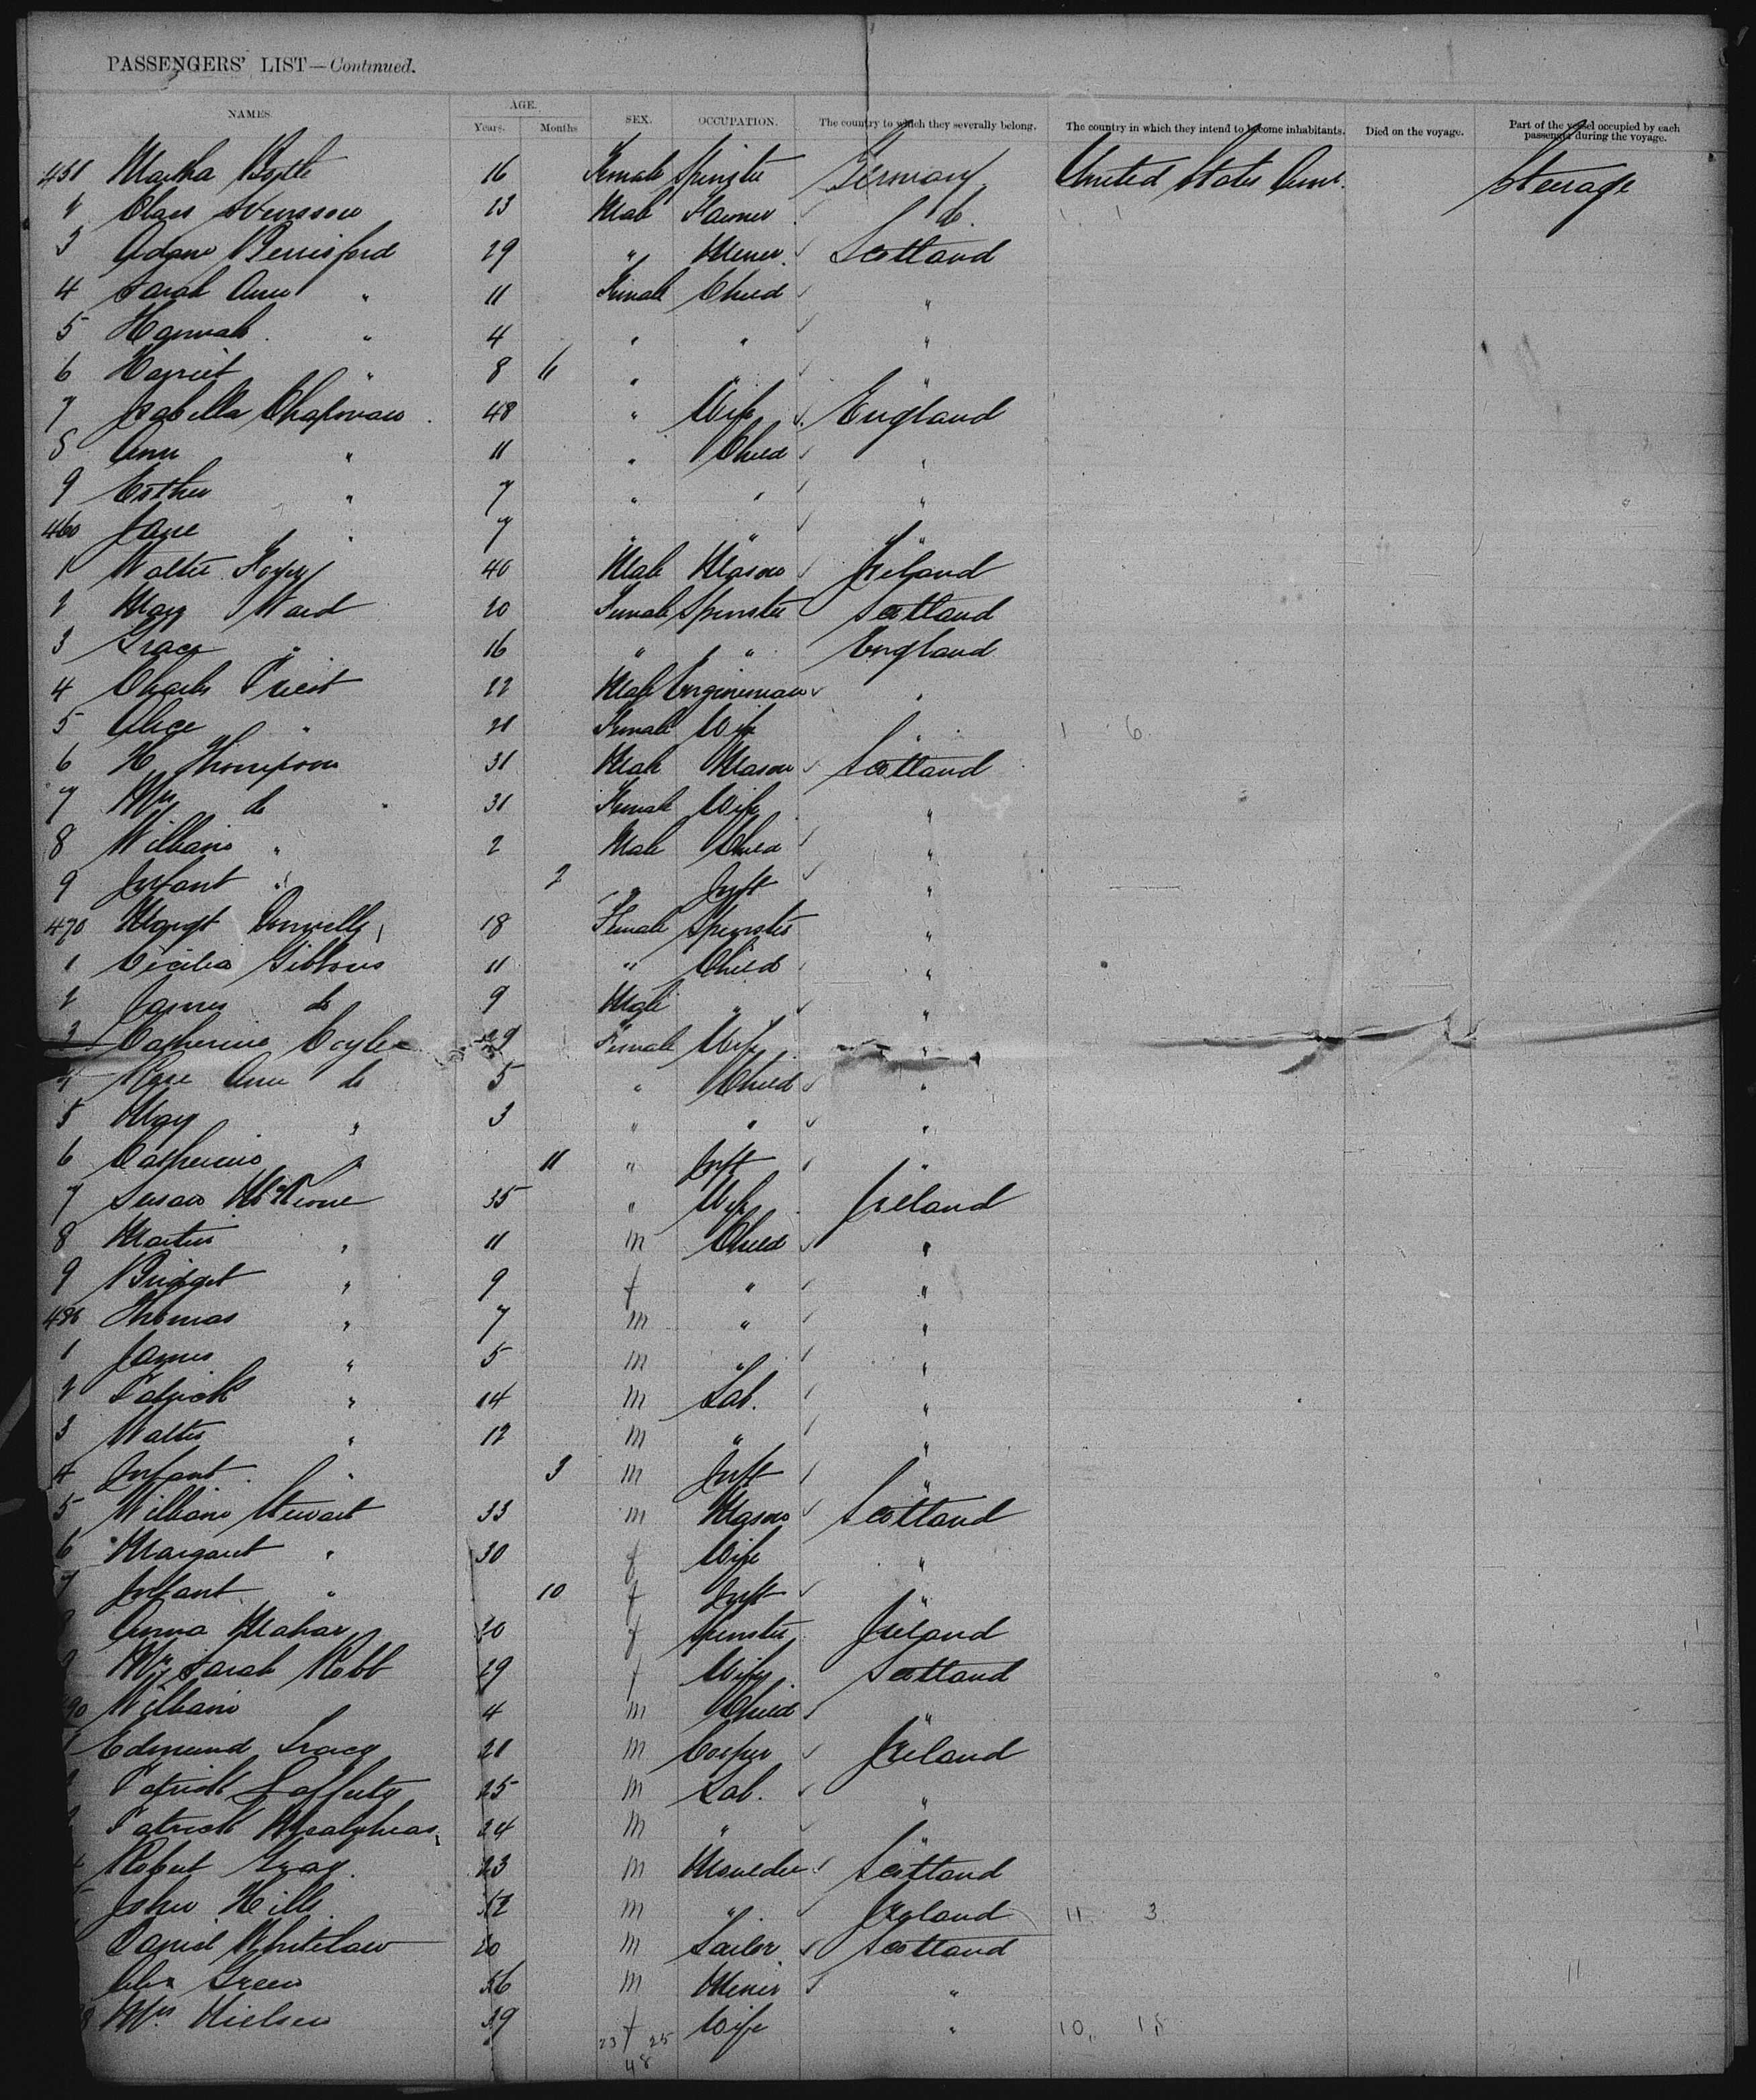 PASSENGERS' LIST—Continued.
NAMES. AGE. Years. Months SEX. OCCUPATION. The country to which they severally belong. The country in which they intend to become inhabitants. Died on the voyage. Part of the vessel occupied by each passenger during the voyage.
451 Martha 16 Female Spinster Germany United States Amer. Steerage
2 Claes Svensson 23 Male Farmer do.
3 Adam Berrisford 29 " Miner. Scotland
4 Sarah Ann " 11 Female Child "
5 Hannah " 4 " " "
6 Harriet " 8 11 " " "
7 Isabella Chapman 48 " Wife England
8 Ann " 11 " Child "
9 Esther " 7 " " "
460 Jane " 7 " " "
1 Walter 40 Male Mason Ireland
2 Mary Ward 20 Female Spinster Scotland
3 Grace " 16 " " England
4 Charles Priest 22 Male Engineman "
5 Alice " 21 Female Wife " 1 6
6 H Thompson 31 Male Mason Scotland
7 Mrs do 31 Female Wife "
8 William " 2 Male Child "
9 Infant " 2 " Inft "
470 Margt Donnelly 18 Female Spinster "
1 Cecilia Gibbons 11 " Child "
2 James do 9 Male " "
3 Catherine Coyle 29 Female Wife "
4 Rose Ann do 5 " Child "
5 Mary " 3 " " "
6 Catherine " 11 " Inft "
7 Susan 35 " Wife Ireland
8 Martin " 11 m Child "
9 Bridget " 9 f " "
480 Thomas " 7 m " "
1 James " 5 m " "
2 Patrick " 14 m Lab. "
3 Walter " 12 m " "
4 Infant " 3 m Inft "
5 William Stewart 33 m Mason Scotland
6 Margaret " 30 f Wife "
7 Infant " 10 f Inft "
Anna Mahar 20 f Spinster Ireland
Mrs Sarah Robb 29 f Wife Scotland
90 William 4 m Child "
Edmund Tracy 21 m Ireland
Patrick Lafferty 25 m Lab. "
Patrick 24 m " "
Robert Gray 23 m Moulder Scotland
John Hill 52 m " Ireland 11 3
Daniel Whitelaw 20 m Sailor Scotland
Alex Green 56 m Miner " 11
8 Mrs Nielsen 29 f Wife " 10 18
23 25
48